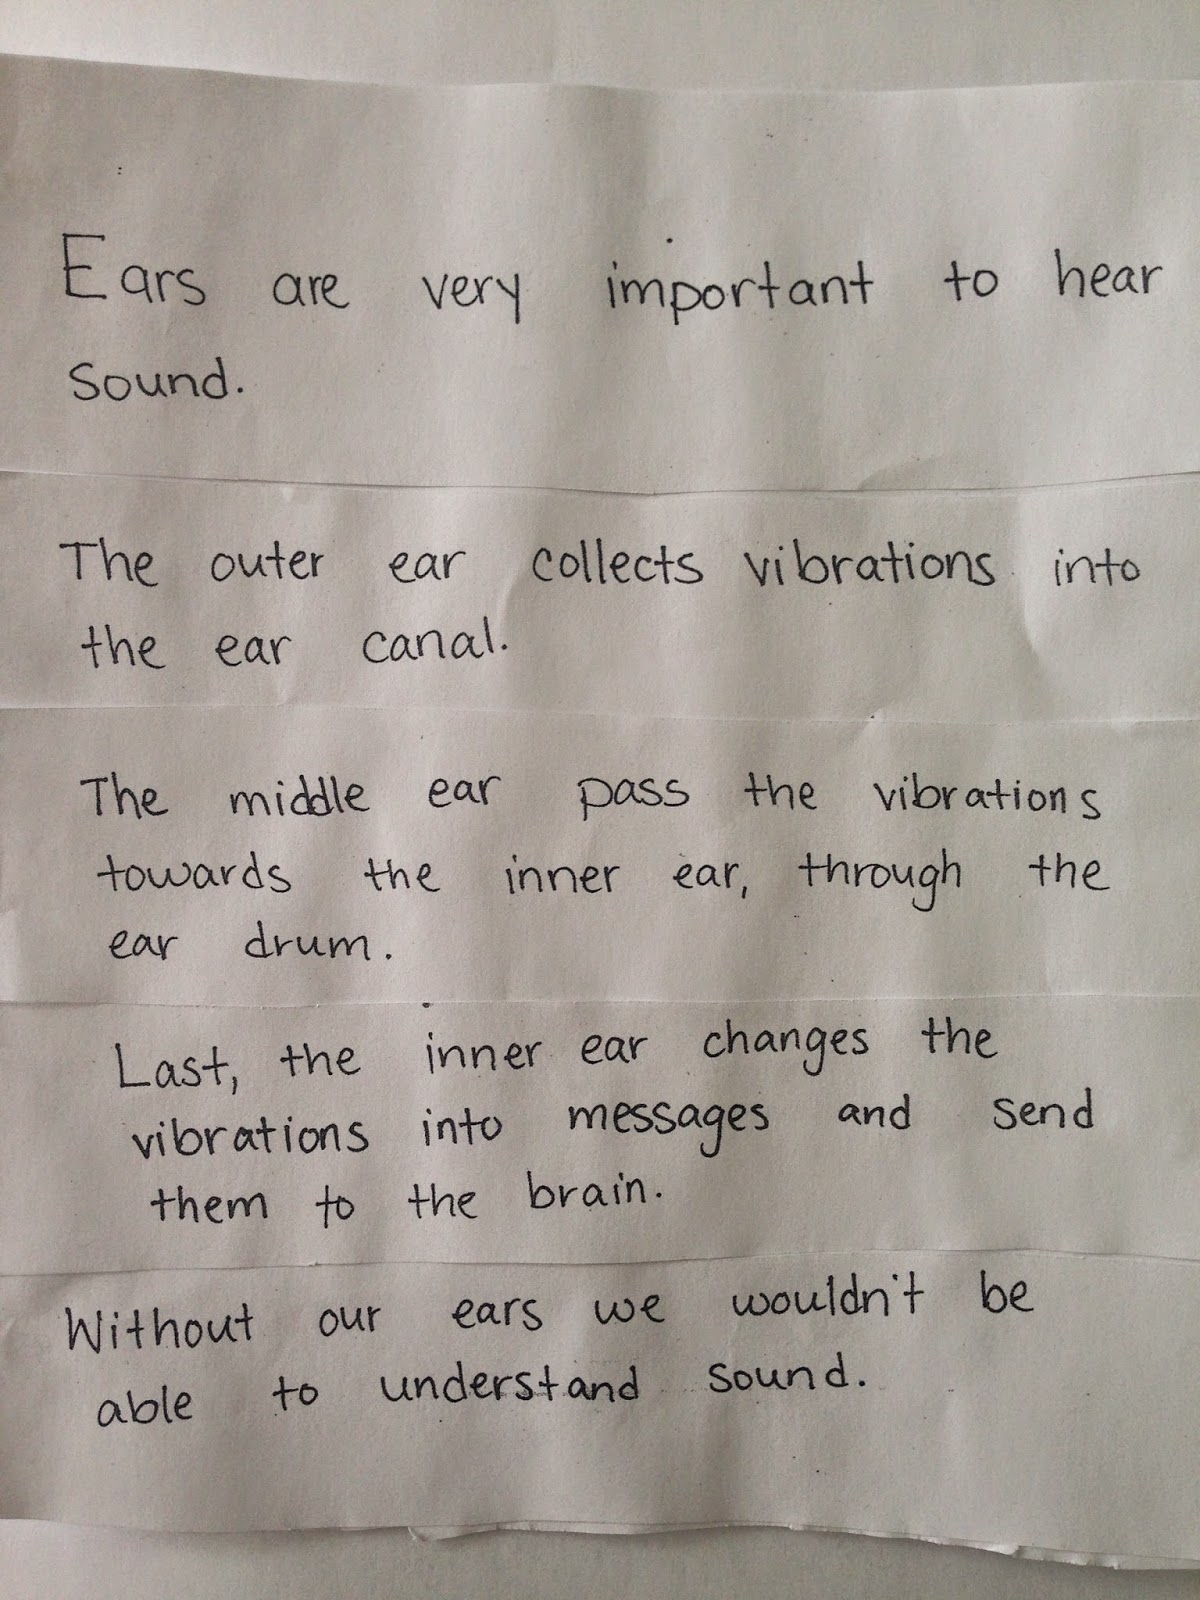 Ears are very important to hear
sound.
The outer ear collects vibrations into
the ear canal.
The middle ear pass the vibrations
towards the inner ear, through the
ear drum.
Last, the inner ear changes the
vibrations into messages and send
them to the brain.
Without our ears we wouldn't be
able to understand sound.